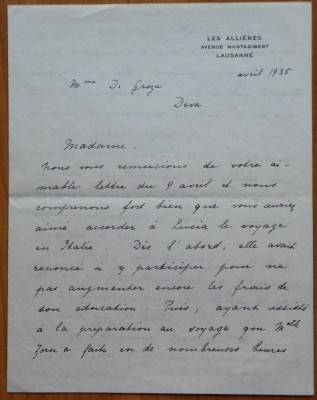 LES ALLIÈRES
AVENUE MONTAGIBERT
LAUSANNE
avril 1935
Mme D. Groza
Deva
Madame,
Nous vous remercions de votre ai-
mable lettre du 9 avril et nous
comprenons fort bien que vous auriez
aimé accorder à Lucia le voyage
en Italie. Dès l'abord, elle avait
renoncé à y participer pour ne
pas augmenter encore les frais de
son éducation. Puis, ayant assisté
à la préparation au voyage que Mlle
Zorn a faite en de nombreuses heures